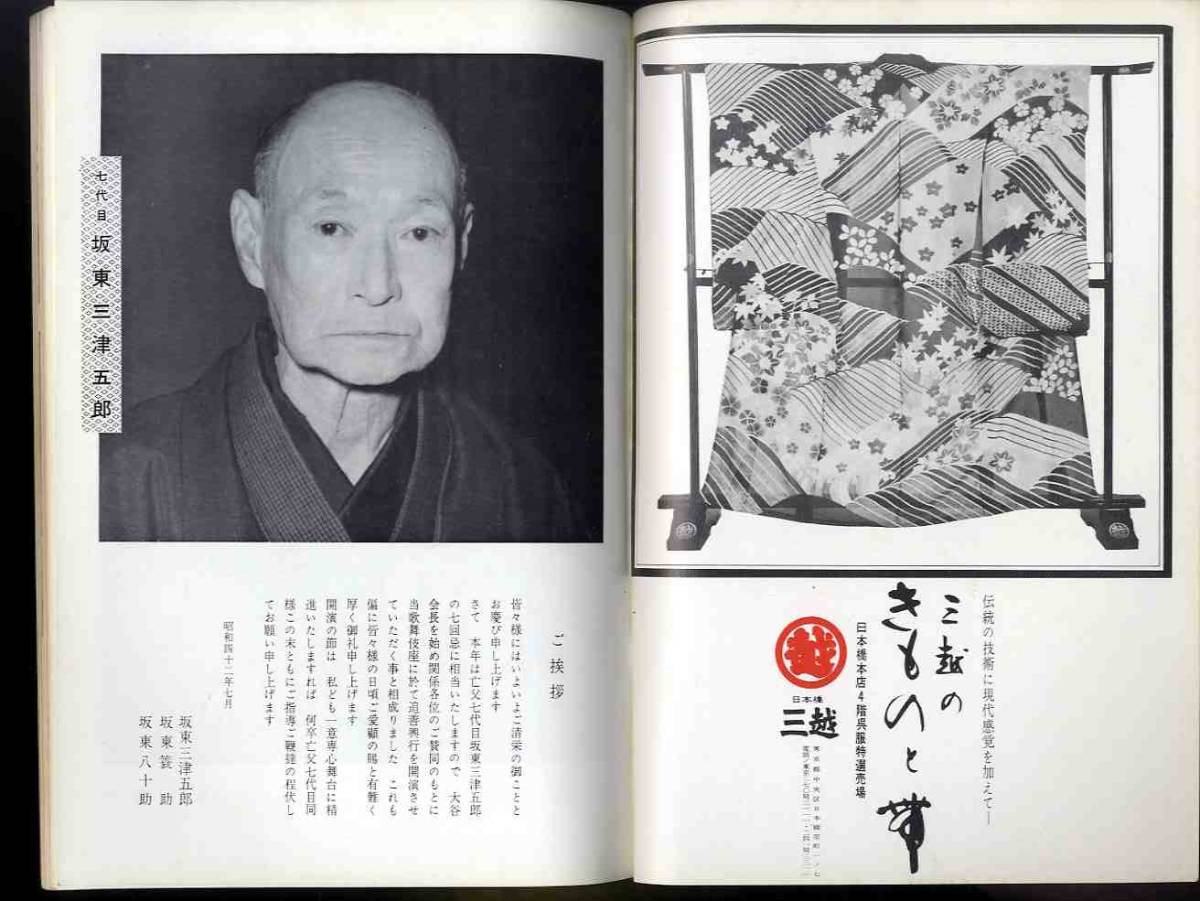 伝統の技術に現代感覚を加えて―
三越の
きものと帯
日本橋本店4階呉服特選売場
越
日本橋
三越
七代目 坂東三津五郎
ご挨拶
皆々様にはいよいよご清栄の御ことと
お慶び申し上げます
さて 本年は亡父七代目坂東三津五郎
の七回忌に相当いたしますので 大谷
会長を始め関係各位のご賛同のもとに
当歌舞伎座に於て追善興行を開演させ
ていただく事と相成りました これも
偏に皆々様の日頃ご愛顧の賜と有難く
厚く御礼申し上げます
開演の節は 私ども一意専心舞台に精
進いたしますれば 何卒亡父七代目同
様この末ともにご指導ご鞭撻の程伏し
てお願い申し上げます
昭和四十二年七月
坂東三津五郎
坂東簑助
坂東八十助